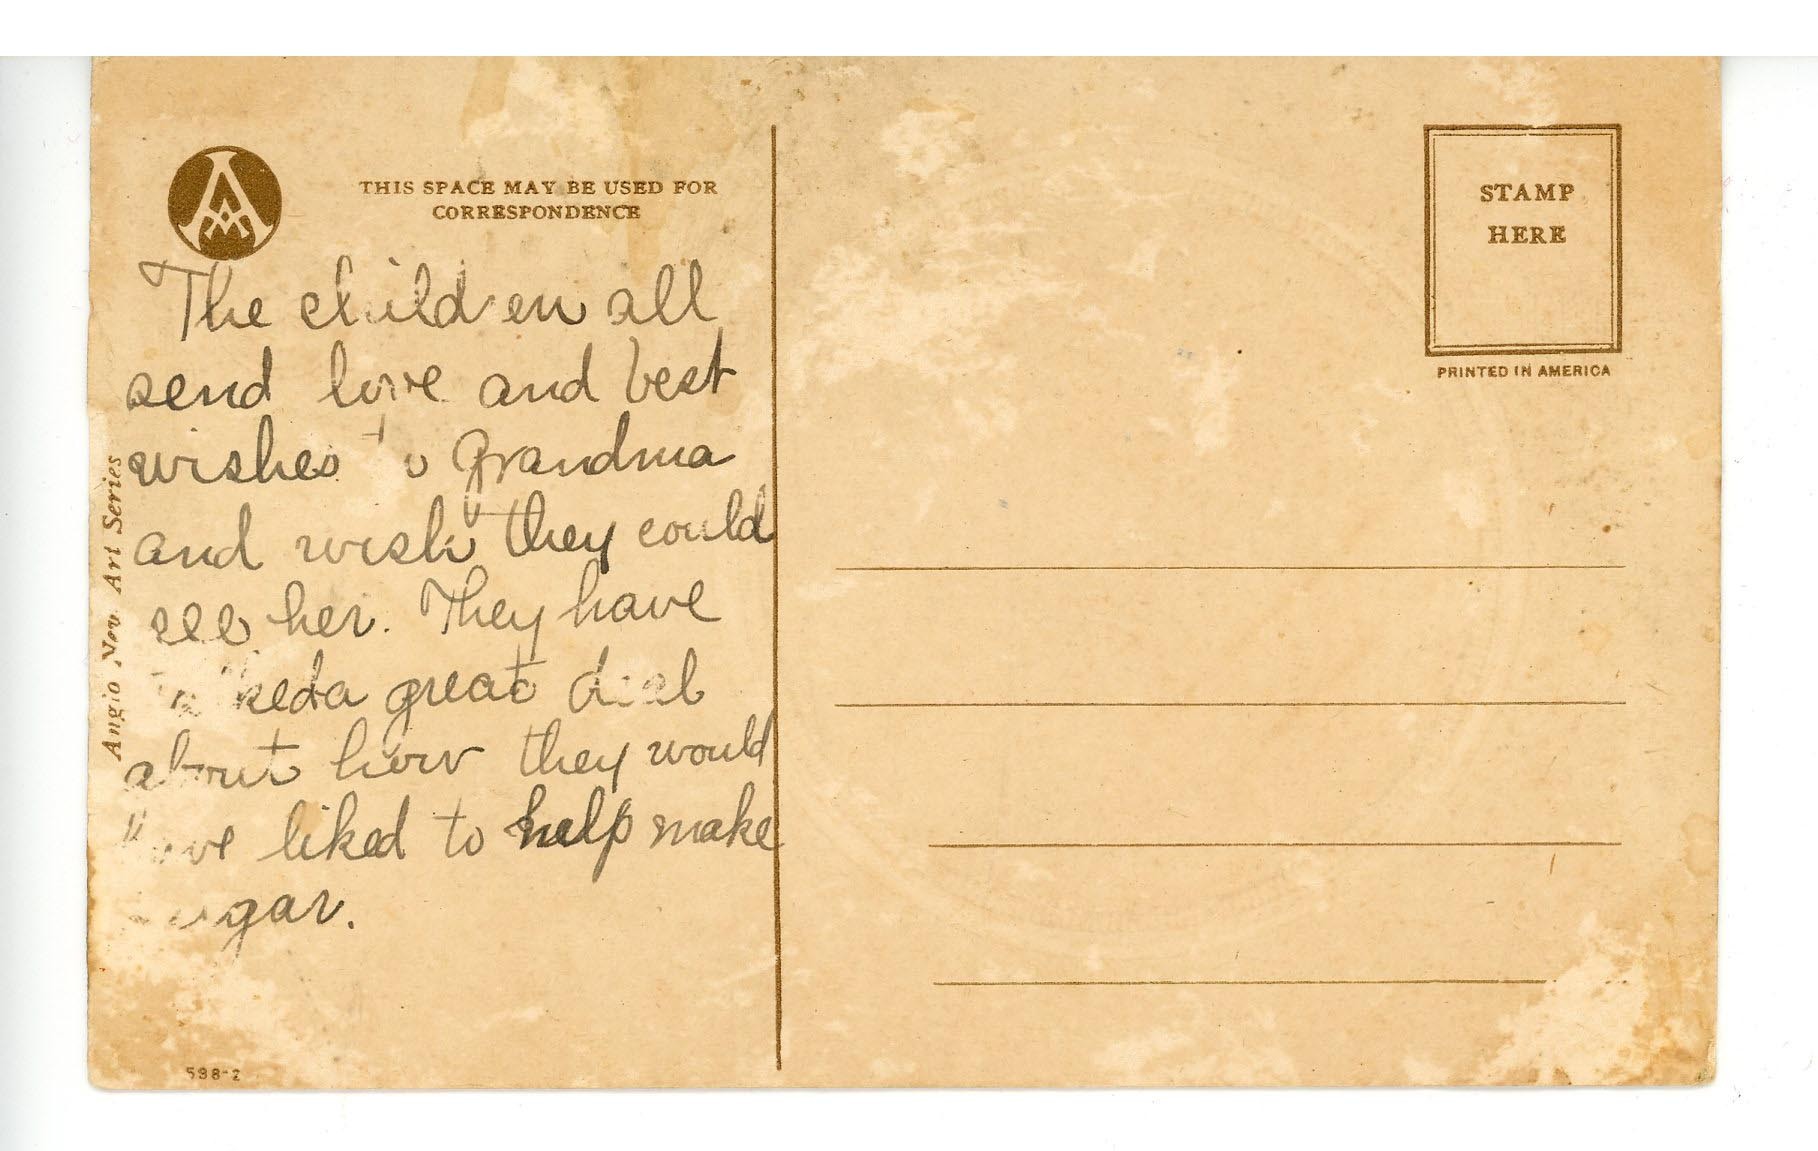 THIS SPACE MAY BE USED FOR
CORRESPONDENCE
The children all
send love and best
wishes to Grandma
and wish they could
see her. They have
talked a great deal
about how they would
have liked to help make
sugar.
Anglo Nov. Art Series
598-2
STAMP
HERE
PRINTED IN AMERICA